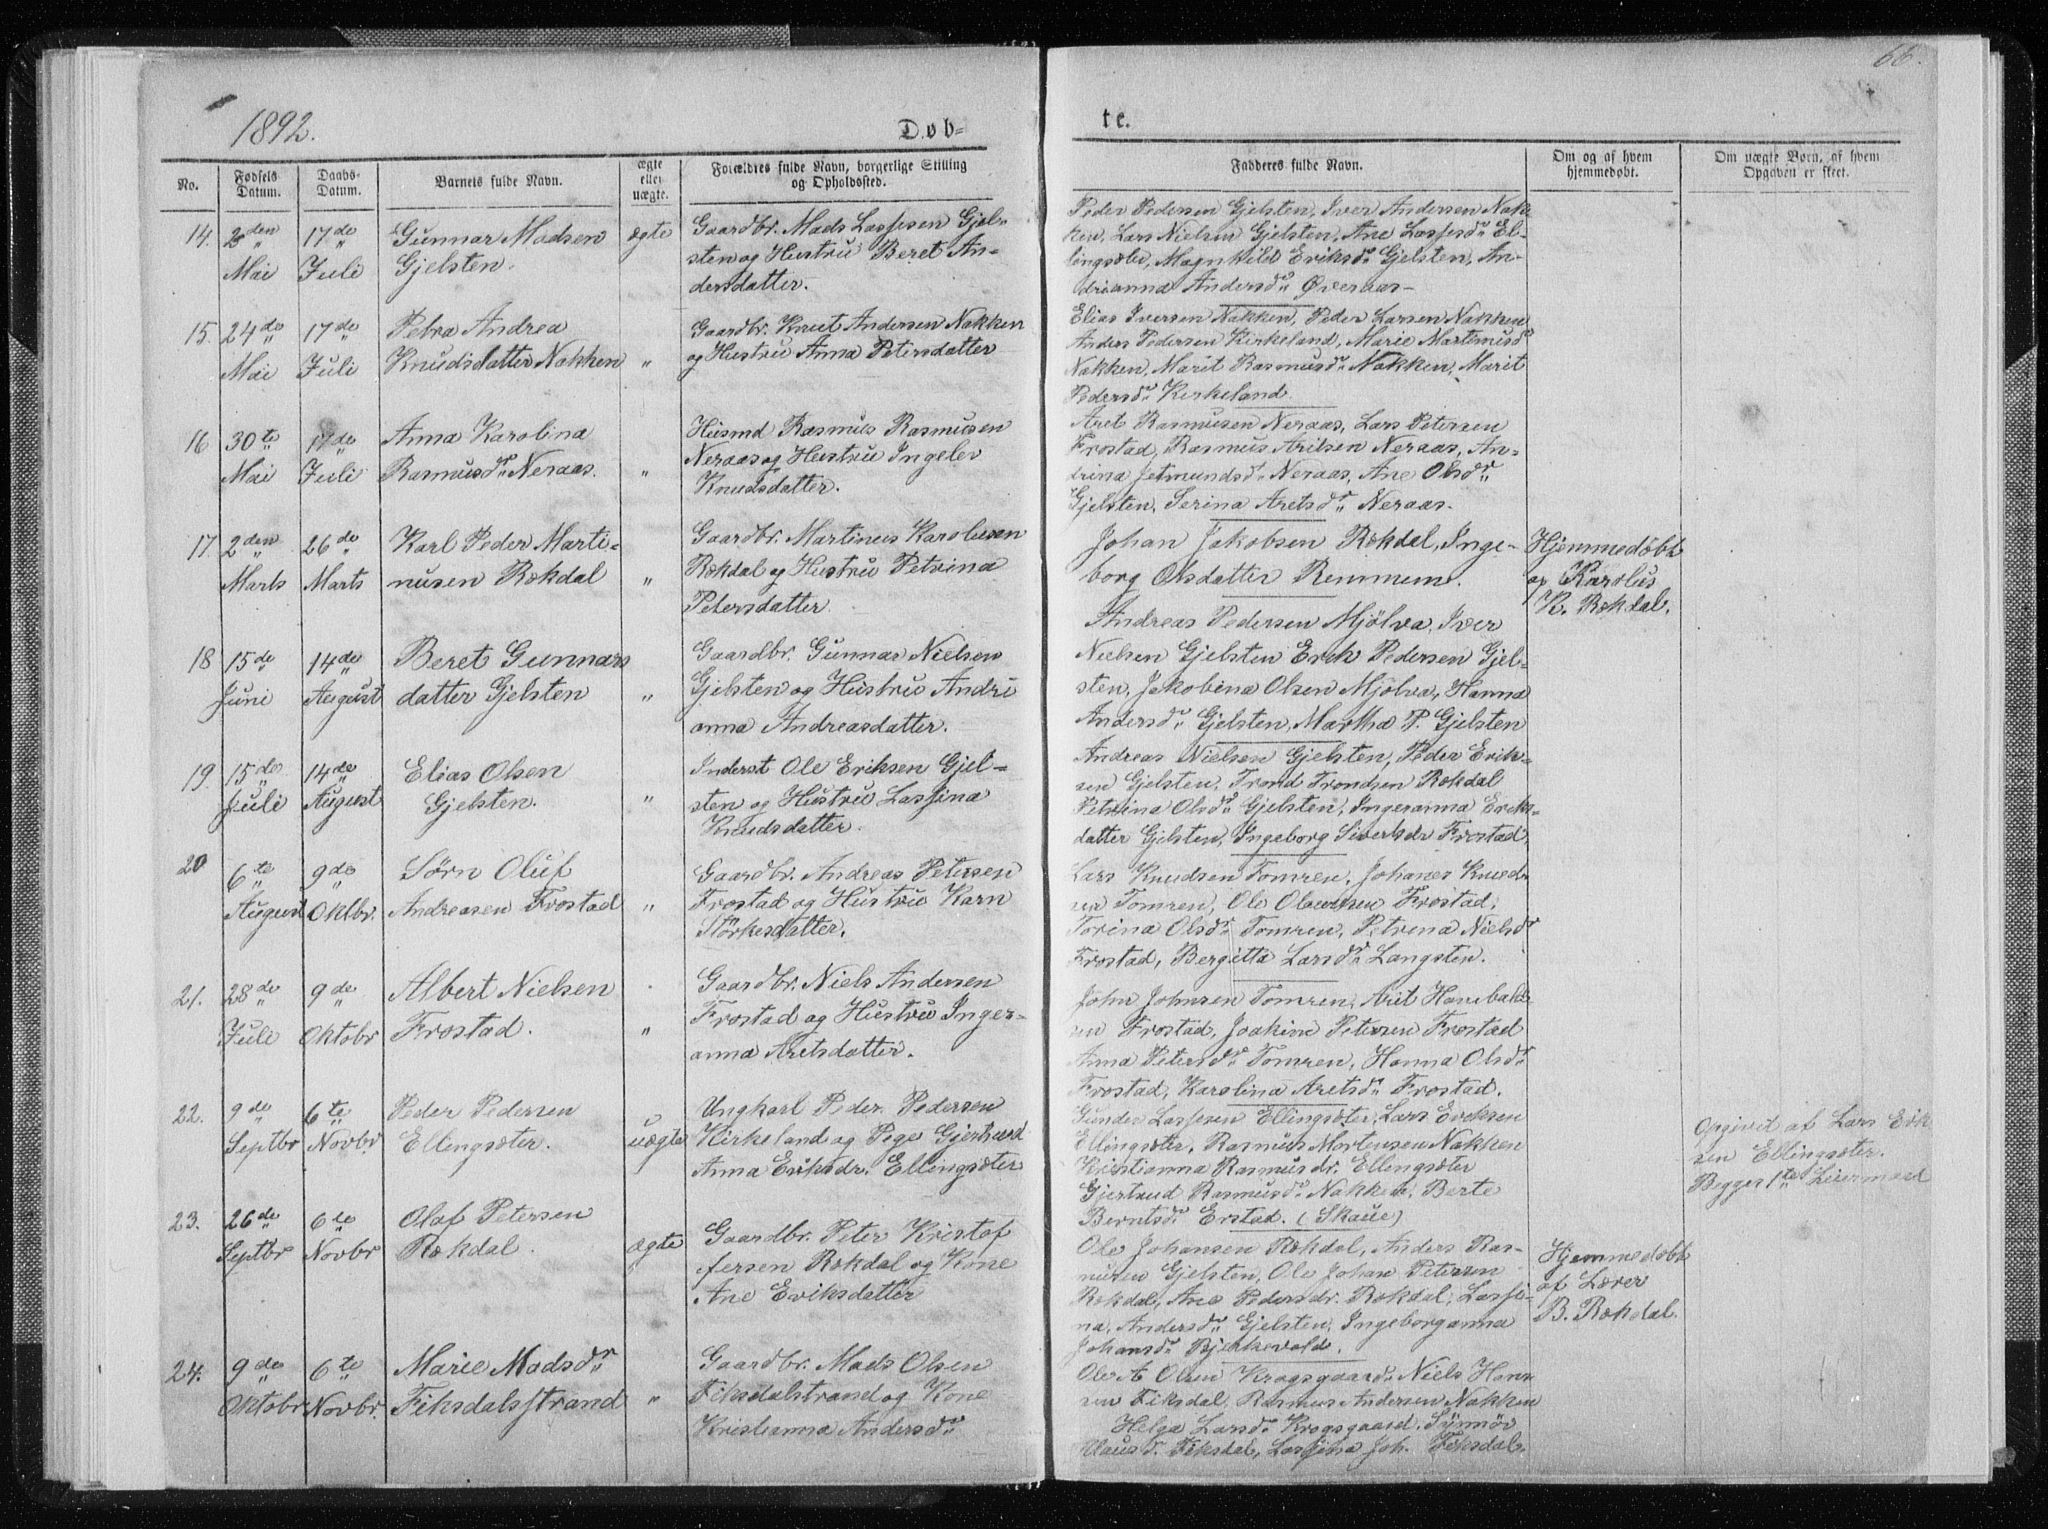 66.
1892.
Døb=
te.
No.
Fødsels Datum.
Daabs-Datum.
Barnets fulde Navn.
ægte eller uægte.
Forældres fulde Navn, borgerlige Stilling og Opholdssted.
Fadderes fulde Navn.
Om og af hvem hjemmedøbt.
Om uægte Børn, af hvem Opgaven er skeet.
14. 2den 17de Gunnar Madsen ægte Gaardbr. Mads Lassesen Gjel-
Mai Juli Gjelsten. sten og Hustru Beret An-
dersdatter.
Peder Pedersen Gjelsten, Iver Andersen Nak-
ken, Lars Nielsen Gjelsten, Ane Lassesdr El-
lingsæter, Magnhild Eriksdr Gjelsten, An-
drianna Andersdr Øveraas-
15. 24de 17de Petra Andrea Gaardbr. Knut Andersen Nakken
Mai Juli Knudsdatter Nakken " og Hustru Anna Petersdatter
Elias Iversen Nakken, Peder Larsen Nakken
Anders Pedersen Kirkeland, Marie Martinusdr
Nakken, Marit Rasmusdr Nakken, Marit
Pedersdr Kirkeland.
16 30te 17de Anna Karolina Husmd Rasmus Rasmusen
Mai Juli Rasmusdr Neraas. " Neraas og Hustru Ingelev
Knudsdatter.
Aret Rasmusen Neraas, Lars Petersen
Frostad, Rasmus Aritsen Neraas, An-
drina Jetmundsdr Neraas, Ane Olsdr
Gjelsten, Serina Aretsdr Neraas.
17. 2den 26de Karl Peder Marti- Gaardbr. Martinus Karolusen
Marts Marts nusen Rokdal " Rokdal og Hustru Petrina
Petersdatter.
Johan Jakobsen Rokdal, Inge-
borg Olsdatter Remmem.
Hjemmedøbt
af Karolus
K. Rokdal.
18 15de 14de Beret Gunnars Gaardbr. Gunnar Nielsen
Juni August datter Gjelsten " Gjelsten og Hustru Andri
anna Andreasdatter.
Andreas Pedersen Mjölva, Iver
Nielsen Gjelsten Erik Pedersen Gjel-
sten, Jakobina Olsen Mjölva, Hanna
Andersdr Gjelsten, Martha P. Gjelsten
19. 15de 14de Elias Olsen Inderst Ole Eriksen Gjel-
Juli August Gjelsten. " sten og Hustru Lassina
Knudsdatter.
Andreas Nielsen Gjelsten, Peder Erik-
sen Gjelsten, Trond Trondsen Rokdal
Petrina Olsdr Gjelsten, Ingeranna Eriks-
datter Gjelsten, Ingeborg Sivertsdr Frostad.
20 6te 9de Sörn Oluf Gaardbr. Andreas Petersen
August Oktbr. Andreasen Frostad " Frostad og Hustru Karn
Störkesdatter.
Lars Knudsen Tomren, Johanes Knud-
sen Tomren, Ole Frostad,
Torina Olsdr Tomren, Petrina Nielsdr
Frostad, Bergitta Larsdr Langsten.
21. 28de 9de Albert Nielsen Gaardbr. Niels Andersen
Juli Oktobr Frostad. " Frostad og Hustru Inger-
anna Aretsdatter.
John Johnsen Tomren, Arit
sen Frostad, Joakim Petersen Frostad
Anna Petersdr Tomren, Hanna Olsdr
Frostad, Karolina Aretsdr Frostad.
22. 9de 6te Peder Pedersen Ungkarl Peder Pedersen
Septbr Novbr. Ellingsæter. uægte Kirkeland og Pige
Anna Eriksdr. Ellingsæter
Gunder Lassesen Ellingsæter, Lars Eriksen
Ellingsæter, Rasmus Mortensen Nakken
Kristianna Rasmusdr. Ellingsæter
Gjertrud Rasmusdr Nakken, Berte
Berntsdr Erstad. (Skaue)
Opgivet af Lars Erik
sen Ellingsæter.
Begges 1te Leiermaal
23. 26de 6te Olaf Petersen
Septbr Novbr Rokdal. ægte Gaardbr. Peter Kristof
fersen Rokdal og Kone
Ane Eriksdatter
Ole Johansen Rokdal, Anders Ras-
musen Gjelsten, Ole Johan Petersen
Rokdal, Ane Pedersdr. Rokdal, Lassi-
na, Andersdr Gjelsten, Ingeborganna
Johansdr Bjerkevold.
Hjemmedøbt
af Lærer
B. Rokdal.
24. 9de 6te Marie Madsdr Gaardbr. Mads Olsen
Oktobr Novbr. Fiksdalsstrand " Fiksdalstrand og Kone
Kristianna Andersdr
Ole A Olsen Krogsgaard, Niels Han-
sen Fiksdal, Rasmus Andersen Nakken
Helga Larsdr Krogsgaard, Synnöv
Clausd. Fiksdal, Lassina Joh. Fiksdal.